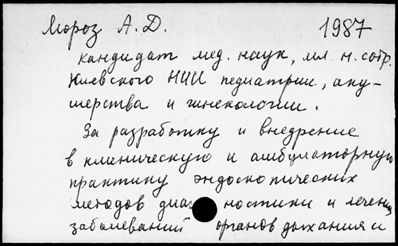 Мороз А. Д. 1987
кандидат мед. наук, мл. н. сотр.
Киевского НИИ педиатрии, аку-
шерства и гинекологии.
За разработку и внедрение
в клиническую и амбулаторную
практику эндоскопических
методов диаг ностики и лечения
заболеваний органов дыхания и